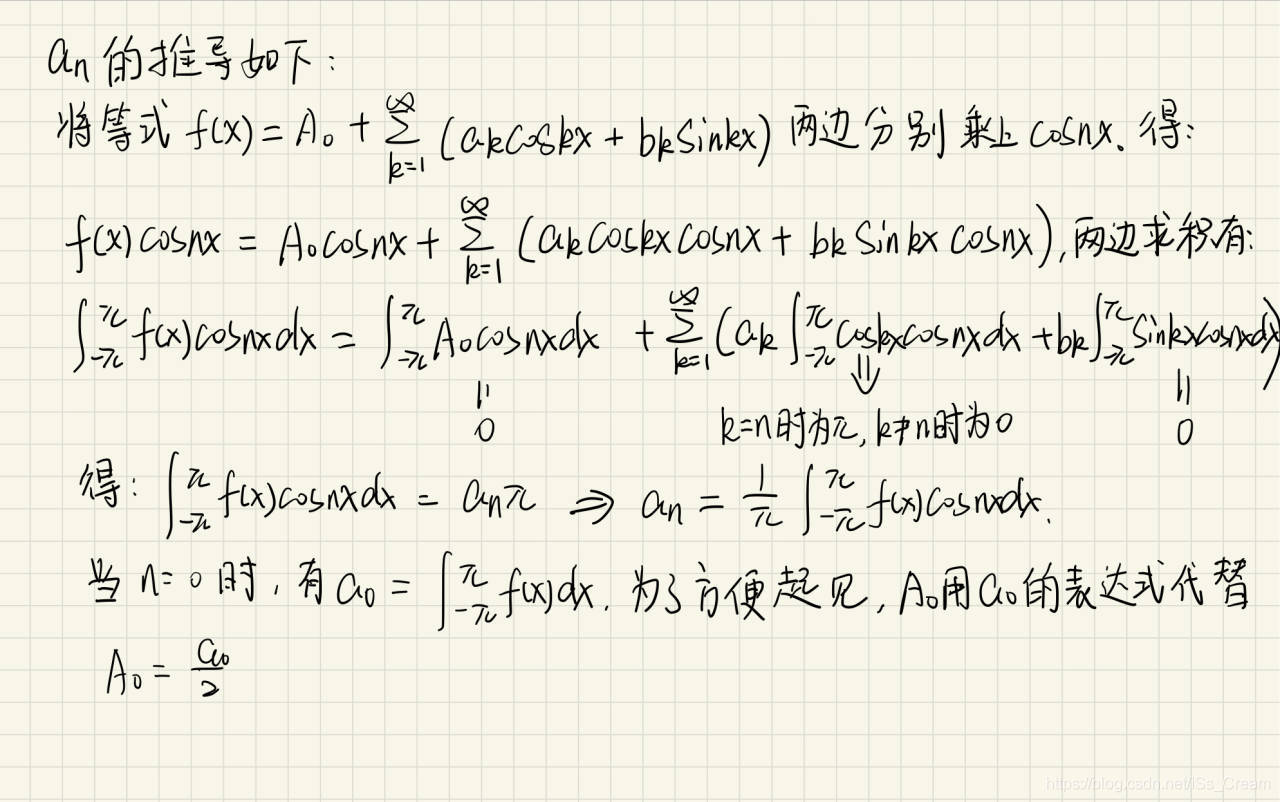 an 的推导如下：
将等式 f(x) = A₀ + ∑_{k=1}^{∞} (akcoskx + bksinkx) 两边分别乘上 cosnx。得：
f(x)cosnx = A₀cosnx + ∑_{k=1}^{∞} (akcoskxcosnx + bksinkxcosnx), 两边求积有:
∫_{-π}^{π} f(x)cosnxdx = ∫_{-π}^{π} A₀cosnxdx + ∑_{k=1}^{∞} (ak ∫_{-π}^{π} coskxcosnxdx + bk ∫_{-π}^{π} sinkxcosnxdx)
|| ⇓ ||
0 k=n时为π, k≠n时为0 0
得: ∫_{-π}^{π} f(x)cosnxdx = anπ ⇒ an = 1/π ∫_{-π}^{π} f(x)cosnxdx.
当 n=0 时, 有 a₀ = ∫_{-π}^{π} f(x)dx. 为了方便起见, A₀用a₀的表达式代替
A₀ = a₀/2
https://blog.csdn.net/iSs_Cream